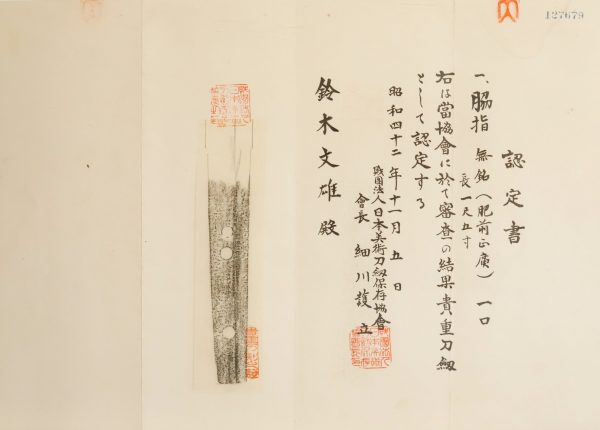 127679
認定書
一、脇指 無銘（肥前正廣） 一口
長一尺五寸
右は當協會に於て審査の結果貴重刀劔
として認定する
昭和四十二年十一月五日
財團法人日本美術刀劔保存協會
會長 細川護立
鈴木文雄殿